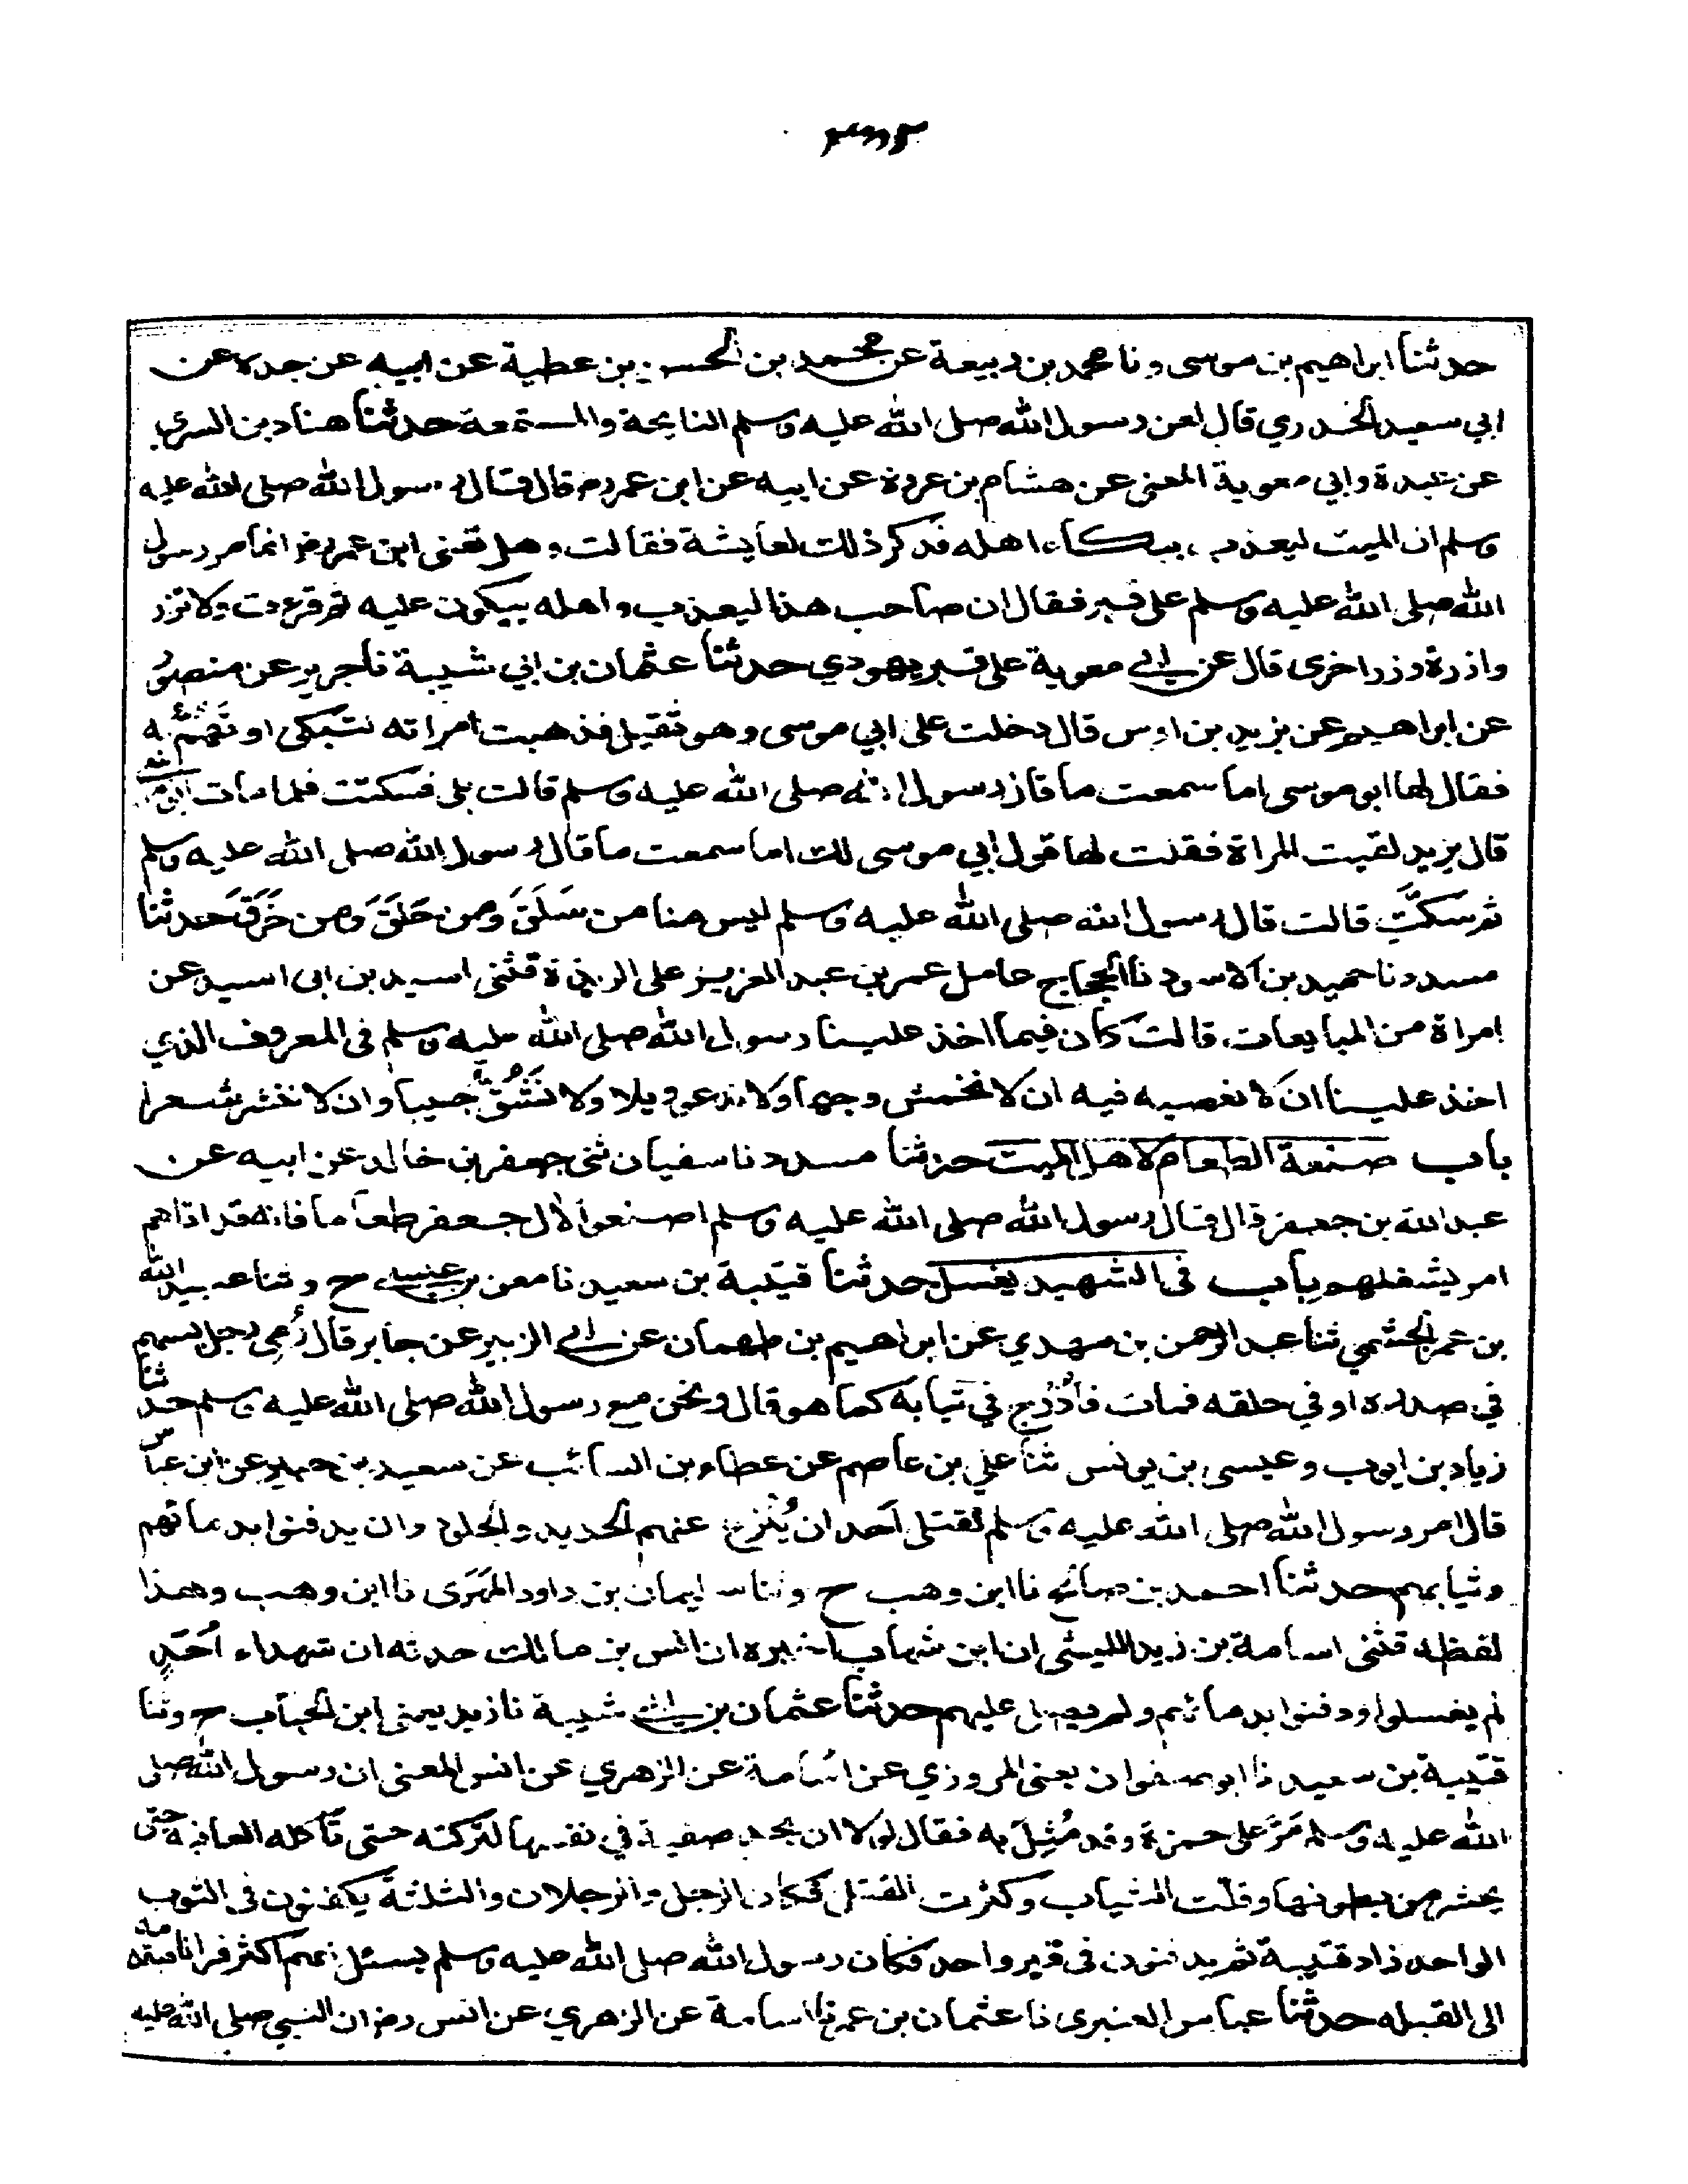 حدثنا ابراهيم بن موسى ونا محمد بن ربيعة عن محمد بن الحسن بن عطية عن ابيه عن جده عن
ابي سعيد الخدري قال لعن رسول الله صلى الله عليه وسلم النايحة والمستمعة حدثنا هناد بن السري
عن عبدة وابي معوية المعنى عن هشام بن عروة عن ابيه عن ابن عمر رض قال قال رسول الله صلى الله عليه
وسلم ان الميت ليعذب ببكاء اهله فذكر ذلك لعايشة فقالت وهل تعنى ابن عمر رض انما مر رسول
الله صلى الله عليه وسلم على قبر فقال ان صاحب هذا ليعذب واهله يبكون عليه ثم قرءت ولا تزر
وازرة وزر اخرى قال عن ابي معوية على قبر يهودي حدثنا عثمان بن ابي شيبة نا جرير عن منصور
عن ابراهيم عن يزيد بن اوس قال دخلت على ابي موسى وهو ثقيل فذهبت امراته لتبكى او تهم به
فقال لها ابو موسى اما سمعت ما قال رسول الله صلى الله عليه وسلم قالت بلى فسكتت فلما مات ابو موسى
قال يزيد لقيت المراة فقلت لها قول ابي موسى لك اما سمعت ما قال رسول الله صلى الله عليه وسلم
ثم سكتِّ قالت قال رسول الله صلى الله عليه وسلم ليس منا من سَلَقَ ومن حَلَقَ ومن خَرَقَ حدثنا
مسدد نا حميد بن الاسود نا الحجاج عامل عمر بن عبد العزيز على الربذة قثنى اسيد بن ابى اسيد عن
امراة من المبايعات قالت كان فيما اخذ علينا رسول الله صلى الله عليه وسلم فى المعروف الذي
اخذ علينا ان لا نعصيه فيه ان لا نخمش وجها ولا ندعو ويلا ولا نَشُقَّ جيبا وان لا ننشر شعرا
باب صنعة الطعام لاهل الميت حدثنا مسدد نا سفيان ثنى جعفر بن خالد عن ابيه عن
عبد الله بن جعفر قال قال رسول الله صلى الله عليه وسلم اصنعوا لال جعفر طعاما فانه قد اتاهم
امر يشغلهم باب فى الشهيد يغسل حدثنا قتيبة بن سعيد نا معن بن عيسى ح وثنا عبيد الله
بن عمر الجشمي ثنا عبد الرحمن بن مهدي عن ابراهيم بن طهمان عن ابي الزبير عن جابر قال رُمِي رجل بسهم
في صدره او في حلقه فمات فأُدْرِج في ثيابه كما هو قال ونحن مع رسول الله صلى الله عليه وسلم حدثنا
زياد بن ايوب وعيسى بن يونس ثنا علي بن عاصم عن عطاء بن السائب عن سعيد بن جبير عن ابن عباس
قال امر رسول الله صلى الله عليه وسلم لقتلى أحد ان يُنْزع عنهم الحديد والجلود وان يدفنوا بدمائهم
وثيابهم حدثنا احمد بن صالح نا ابن وهب ح وثنا سليمان بن داود المَهْرَى نا ابن وهب وهذا
لفظه قثنى اسامة بن زيد الليثى ان ابن شهاب اخبره ان انس بن مالك حدثه ان شهداء أُحُدٍ
لم يغسلوا ودفنوا بدمائهم ولم يصل عليهم حدثنا عثمان بن ابي شيبة نا زيد يعنى ابن الحباب ح وثنا
قتيبة بن سعيد نا ابو صفوان يعنى المروزي عن أسامة عن الزهري عن انس المعنى ان رسول الله صلى
الله عليه وسلم مَرَّ على حمزة وقد مُثِلَ به فقال لولا ان تجد صفية في نفسها لتركته حتى تأكله العافية حتى
يحشر من بطونها وقلّت الثياب وكثرت القتلى فكان الرجل والرجلان والثلثة يكفنون فى الثوب
الواحد زاد قتيبة ثم يدفنون فى قبر واحد فكان رسول الله صلى الله عليه وسلم يسئل ايهم اكثر قرانا فيقدمه
الى القبله حدثنا عباس العنبرى نا عثمان بن عمر نا اسامة عن الزهري عن انس رض ان النبي صلى الله عليه